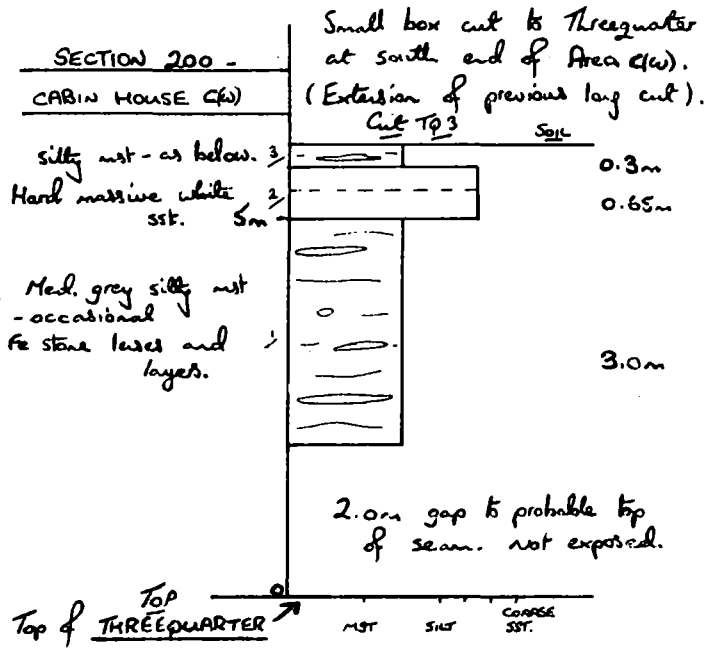 Small box cut to Threequarter
at south end of Area C(W).
(Extension of previous long cut).
SECTION 200 -
CABIN HOUSE C(W)
Cut TQ3
SOIL
silty mst - as below. 3
0.3m
Hard massive white 2
sst.
0.65m
5m
Med. grey silty mst
- occasional
Fe stone lenses and 1
layers.
3.0m
2.0m gap to probable top
of seam. Not exposed.
0
TOP
Top of THREEQUARTER
MST SILT COARSE
SST.